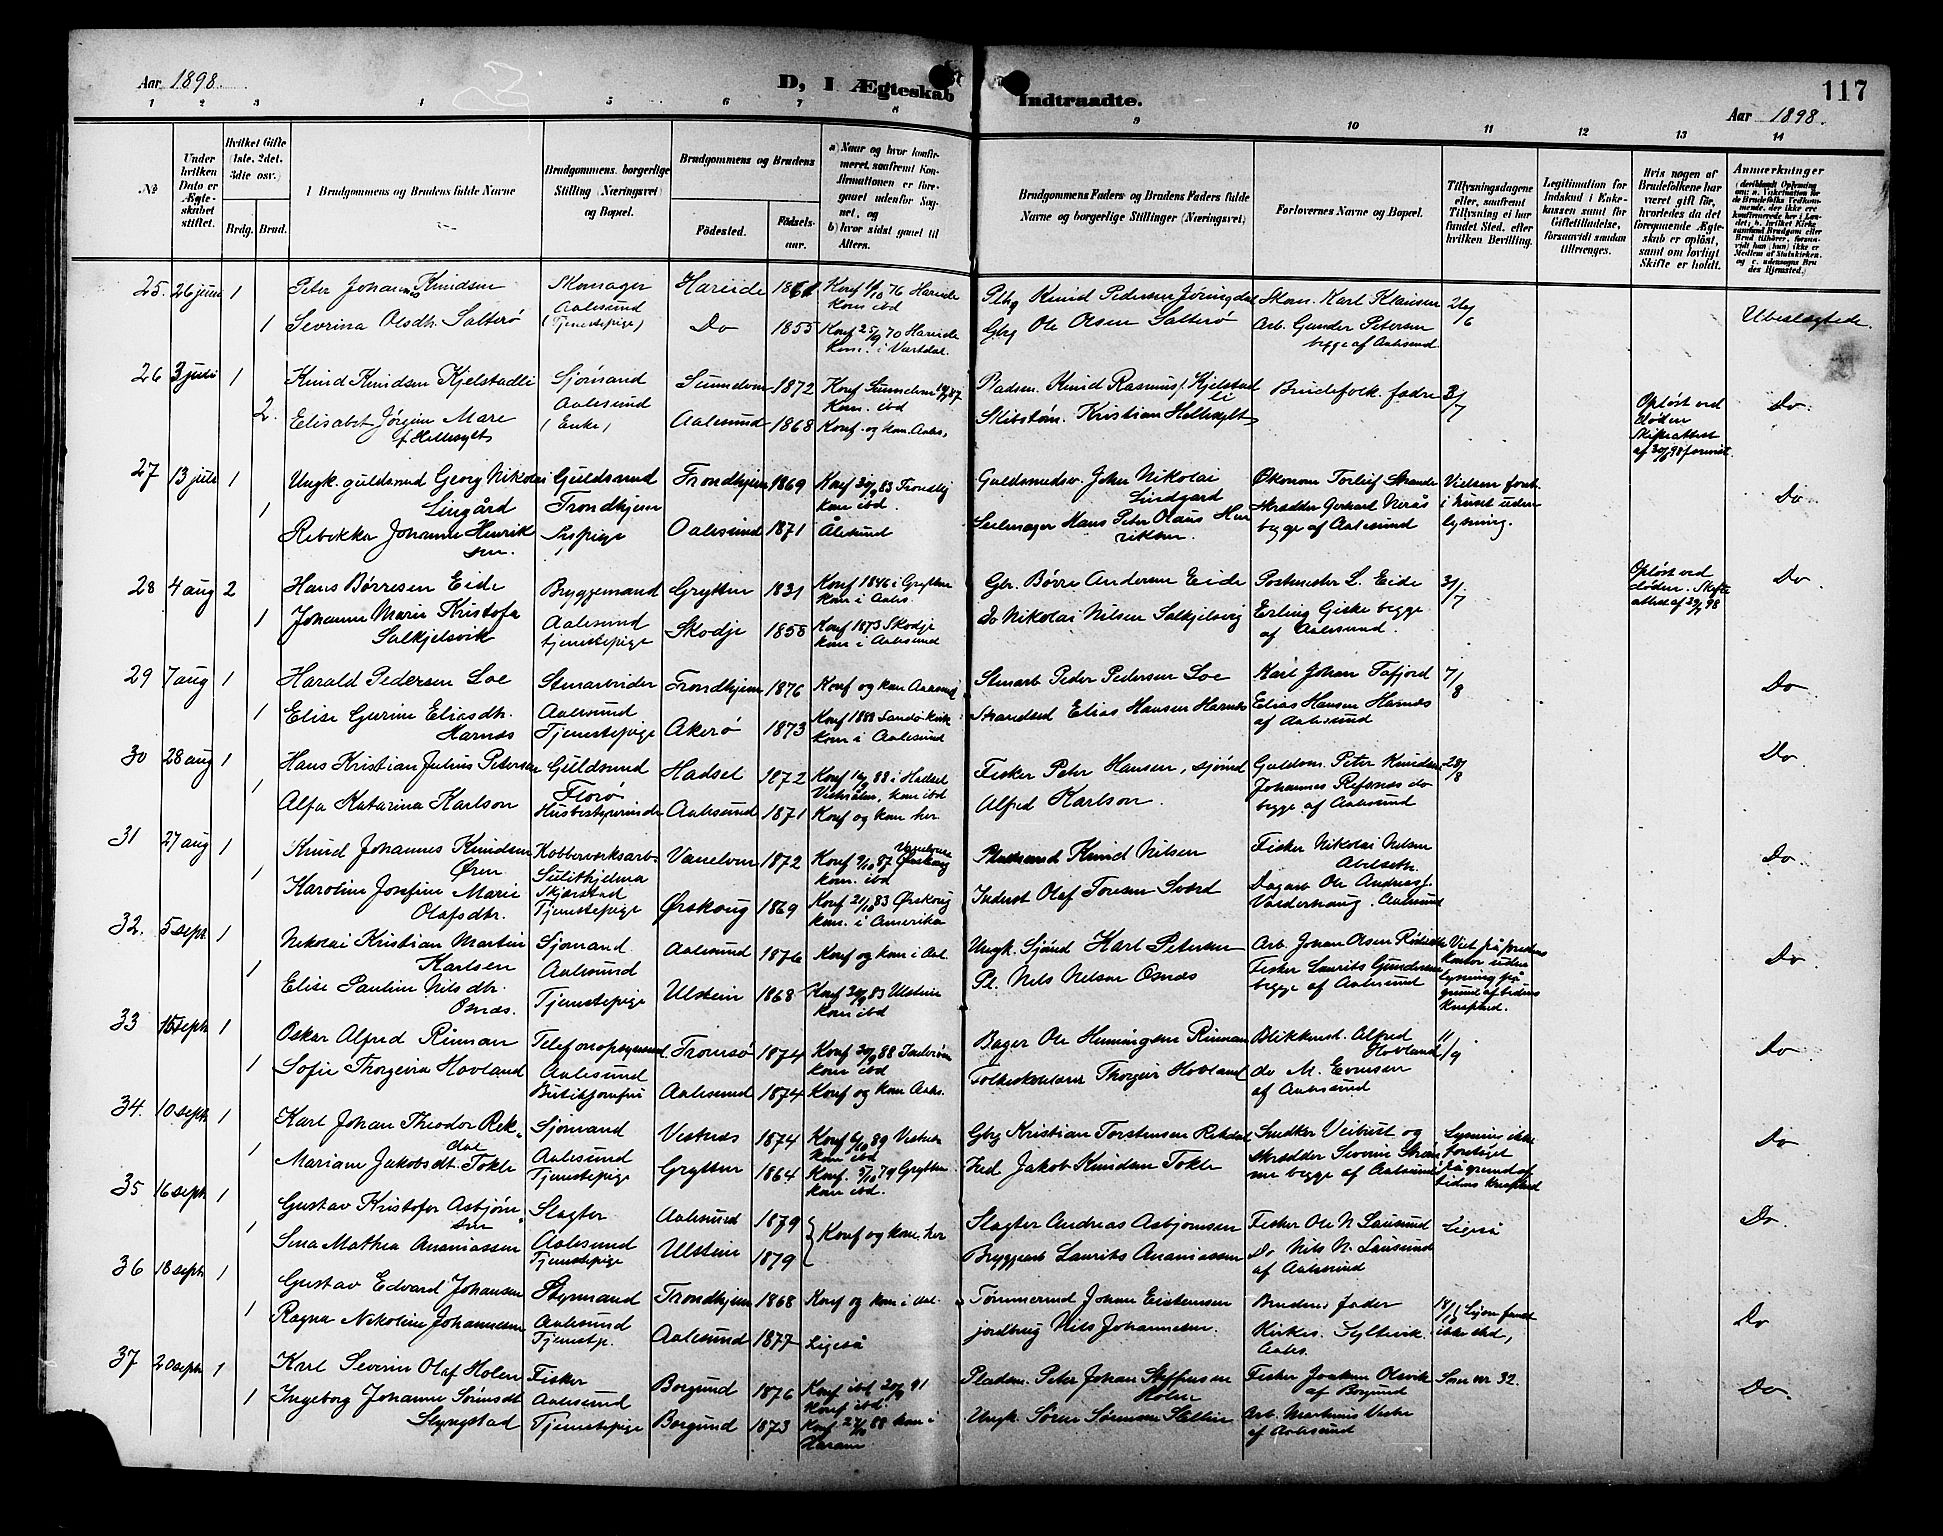 Aar 1898.
D, I Ægteskab Indtraadte.
117
Aar 1898.
1 2 3 4 5 6 7 8 9 10 11 12 13 14
№
Under hvilken Dato er Ægteskabet stiftet.
Hvilket Gifte (1ste, 2det, 3die osv.)
Brdg. Brud.
I Brudgommens og Brudens fulde Navne
Brudgommens borgerlige Stilling (Næringsvei) og Bopæl.
Brudgommens og Brudens
Födested.
Födsels-aar.
a) Naar og hvor konfirmeret, saafremt Konfirmationen er foregaaet udenfor Sognet, og
b) hvor sidst gaaet til Alters.
Brudgommens Faders og Brudens Faders fulde Navne og borgerlige Stillinger (Næringsvei)
Forlovernes Navne og Bopæl.
Tillysningsdagene eller, saafremt Tillysning ei har fundet Sted, efter hvilken Bevilling.
Legitimation for Indskud i Enkekassen samt for Giftetilladelse, forsaavidt saadan tiltrænges.
Hvis nogen af Brudefolkene har været gift för, hvorledes da det foregaaende Ægteskab er oplöst, samt om lovligt Skifte er holdt.
Anmærkninger
25. 26 juni 1 Peter Johannes Knudsen Skomager Hareide 1861 Konf 1/10 76 Hareide Skom. Karl Klausen 26/6
Aalesund kom ibd
1 Sevrina Olsdtr. Salterø (Tjenestepige) Do 1855 Konf 25/9 70 Hareide Gbrg Ole Olsen Salterø Arb. Gunder Petersen Ubeslægtede.
kom. i Vartdal. begge af Aalesund
26 3 juli 1 Knud Knudsen Kjelstadli Sjømand Sunnelven 1872 Konf Sunnelven Pladsm. Knud Rasmuss. Kjelstadli Brudefolk. fædre 3/7
Aalesund kom. ibd
2. Elisabet Jørgine Mare (Enke) Aalesund 1868 Konf. og kom. Aales. Kristian Hellesylt Opløst ved døden Skifteattest Do.
f. Hellesylt
27 13 juli 1 Ungk. guldsmd Georg Nikolai Lingård Guldsmd Trondhjem Trondhjem 1869 Konf 30/9 83 Trondhj kom ibd. Guldsmedsv. Johan Nikolai Lindgard Økonom Torleif Strande i huset uden lysning.
1 Rebekka Johanne Henriksen. Aalesund 1871 Ålesund Seilmager Hans Peter Olaus Henriksen Skrædder Gerhard Nerås begge af Aalesund Do
28 4 aug 2 Hans Børresen Eide Bryggemand Grytten 1831 Konf 1846 i Grytten kom i Aales. Gbr. Børre Andersen Eide Postmester L. Eide 31/7 Opløst ved døden. Do
1 Johanne Marie Kristofa Solkjelsvik Aalesund tjenestepige Skodje 1858 Konf 1873 Skodje kom i Aalesund do Nikolai Nilsen Solkjelsvig Erling Giske begge af Aalesund.
29 7 aug 1 Harald Pedersen Loe Stenarbeider Trondhjem 1876 Konf og kom Aalesund Stenarb Peder Pedersen Loe Karl Johan Tafjord 7/8
1 Elise Gurine Eliasdtr. Harnæs Aalesund Tjenestepige Akerø 1873 Konf 1888 Sandø kirk kom i Aalesund Strandsid Elias Hansen Harnæs Elias Hansen Harnæs af Aalesund Do
30 28 aug 1 Hans Kristian Julius Petersen Guldsmd Florø Hadsel 1872 Konf 88 i Hadsel Vesterålen, kom ibd Fisker Peter Hansen, sjømd Guldsm. Peter Knudsen 28/8 Do.
1 Alfa Katarina Karlson Husbestyrerinde Aalesund 1871 Konf og kom her Alfred Karlson. Johannes Refsnæs do begge af Aalesund
31 27 aug 1 Knud Johannes Knudsen Øren Kobberverksarb. Sulithjelma Skjerstad Vanelven 1872 Konf 9/10 87 Vanelven kom. ibd Pladsmand Knud Nilsen Fisker Nikolai Nilsen Abelseth.
1 Karoline Josefine Marie Olafsdtr. Tjenestepige Ørskoug 1869 Konf 21/10 83 Ørskoug kom. i Amerika Inderst Olaf Toresen Sværd Dagarb Ole Andreas J. Valderhaug. Aalesund Do.
32. 5 sept 1 Nikolai Kristian Martin Karlsen Sjømand. Aalesund Aalesund 1876 Konf og kom i Aal. Ungk. Sjømd Karl Petersen Arb. Johan Olsen Viet på kontor uden lysning på grund af tidens knaphed.
1 Elise Pauline Nilsdtr. Osnæs. Tjenestepige Ulstein 1868 Konf 30/9 83 Ulstein kom ibd Pl. Nils Nilsen Osnæs Fisker Laurits Gundersen begge af Aalesund Do
33 sept 1 Oskar Alfred Rinnan Aalesund Tromsø 1874 Konf 30/9 88 Inderøen kom ibd Bager Ole Henningsen Rinnan Blikkensl. Alfred Hovland 11/9
1 Sofie Thorgeira Hovland Butikjomfru Aalesund 1874 Konf og kom Aales. Folkeskolelærer Thorgeir Hovland do M. Evensen af Aalesund Do
34. 10 sept 1 Karl Johan Theodor Rekdal Sjømand Aalesund Vestnæs 1874 Konf 6/10 89 Vestnæs kom ibd Gbrg Kristian Torstensen Rekdal Snedker Veibust og Lysning ikke foretaget på grund af tidens knaphed
1 Mariane Jakobsdt. Tokle Tjenestepige Grytten 1864 Konf. 5/10 79 Grytten kom ibd. Jakob Knudsen Tokle skrædder Severin Strømme begge af Aalesund Do
35 16 sept 1 Gustav Kristofer Asbjørnsen Slagter Aalesund 1879 Konf og kom. her Slagter Andreas Asbjørnsen Fisker Ole N. Lausund Ligeså
1 Mathea Ananiassen Aalesund Tjenestepige Ulstein 1879 Bryggearb Laurits Ananiassen Do Nils N. Lausund af Aalesund Do.
36 18 sept 1 Gustav Edvard Johansen Styrmand Trondhjem 1868 Konf og kom i Aal. Tømmermd Johan Eistensen Brudens fader
1 Ragna Nikoline Johannesen Aalesund Tjenestp. Aalesund 1877 Ligeså jordbrug Nils Johannesen. Kirkes. Syltevik. Aales. ikke sted, Do
37 20 sept 1 Karl Severin Olaf Holen Fisker Borgund 1876 Konf ibd 20/9 91 Pladsm. Peter Johan Steffensen Holen Fisker Joakim Olsvik af Borgund Som nr 32.
1 Ingeborg Johanne Sørinsdt Slyngstad Aalesund Tjenestepige Borgund 1873 88 kom i Haram Ungk. Søren Sørensen Arb. Martinus af Aalesund Do.